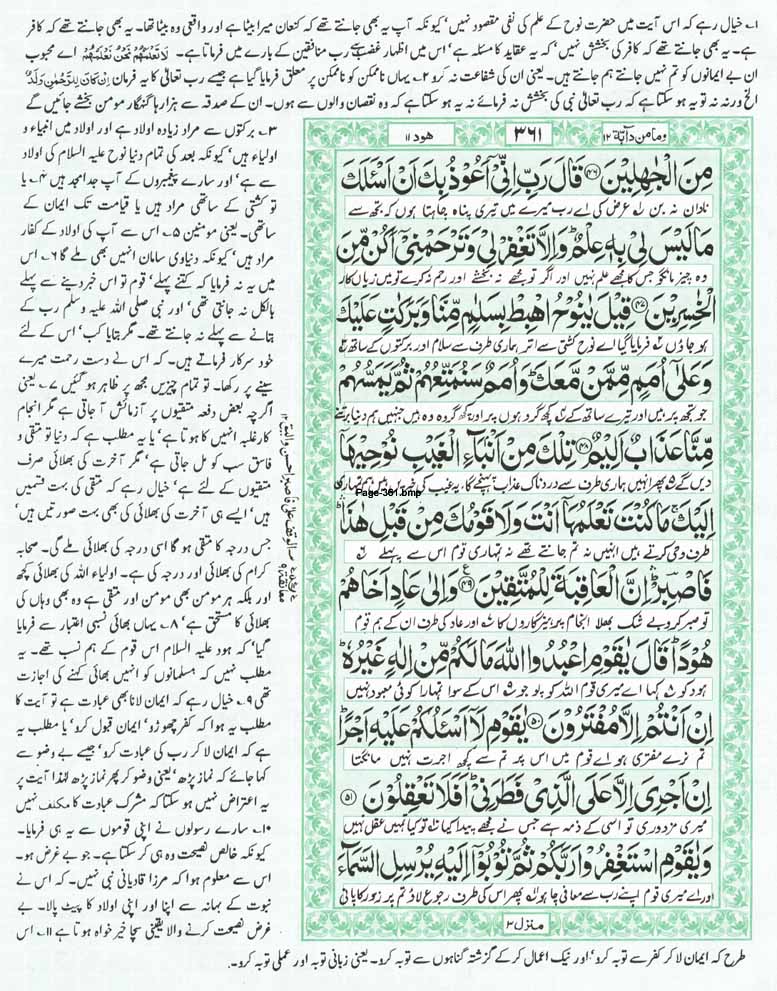 ۱؎ خیال رہے کہ اس آیت میں حضرت نوح کے علم کی نفی مقصود نہیں' کیونکہ آپ یہ بھی جانتے تھے کہ کنعان میرا بیٹا ہے اور واقعی وہ بیٹا تھا۔ یہ بھی جانتے تھے کہ وہ کافر
ہے۔ یہ بھی جانتے تھے کہ کافر کی بخشش نہیں' کہ یہ عقاید کا مسئلہ ہے' اس میں اظہار غضب ہے رب منافقین کے بارے میں فرماتا ہے۔ لَا تَعْلَمُهُمْ نَحْنُ نَعْلَمُهُمْ اے محبوب
ان بے ایمانوں کو تم نہیں جانتے ہم جانتے ہیں۔ یعنی ان کی شفاعت نہ کرو ۲؎ یہاں ناممکن کو ناممکن پر معلق فرمایا گیا ہے جیسے رب تعالیٰ کا یہ فرمان اِنْ كَانَ لِلرَّحْمٰنِ وَلَدٌ
الخ ورنہ نہ تو یہ ہو سکتا ہے کہ رب تعالیٰ نبی کی بخشش نہ فرمائے نہ یہ ہو سکتا ہے کہ وہ نقصان والوں سے ہوں۔ ان کے صدقہ سے ہزارہا گنہگار مومن بخشے جائیں گے
ومامن دآبة ۱۲
۳۶۱
هود ۱۱
مِنَ الْجٰهِلِيْنَ ۴۶ قَالَ رَبِّ اِنِّيْۤ اَعُوْذُ بِكَ اَنْ اَسْـَٔلَكَ
نادان نہ بن عرض کی اے رب میرے میں تیری پناہ چاہتا ہوں کہ تجھ سے
مَا لَيْسَ لِيْ بِهٖ عِلْمٌ ؕ وَاِلَّا تَغْفِرْ لِيْ وَتَرْحَمْنِيْۤ اَكُنْ مِّنَ
وہ چیز مانگو جس کا مجھے علم نہیں اور اگر تو مجھے نہ بخشے اور رحم نہ کرے تو میں زیاں کار
الْخٰسِرِيْنَ ۴۷ قِيْلَ يٰنُوْحُ اهْبِطْ بِسَلٰمٍ مِّنَّا وَبَرَكٰتٍ عَلَيْكَ
ہو جاؤں فرمایا گیا اے نوح کشتی سے اتر ہماری طرف سے سلام اور برکتوں کے ساتھ
وَعَلٰۤى اُمَمٍ مِّمَّنْ مَّعَكَ ؕ وَاُمَمٌ سَنُمَتِّعُهُمْ ثُمَّ يَمَسُّهُمْ
جو تجھ پر ہیں اور تیرے ساتھ کے کچھ گروہوں پر اور کچھ گروہ وہ ہیں جنہیں ہم دنیا برتنے
مِّنَّا عَذَابٌ اَلِيْمٌ ۴۸ تِلْكَ مِنْ اَنْۢبَآءِ الْغَيْبِ نُوْحِيْهَاۤ
دیں گے پھر انہیں ہماری طرف سے دردناک عذاب پہنچے گا یہ غیب کی خبریں ہیں ہم تمہاری
Page-361.bmp
اِلَيْكَ ۚ مَا كُنْتَ تَعْلَمُهَاۤ اَنْتَ وَلَا قَوْمُكَ مِنْ قَبْلِ هٰذَا ؕۛ
طرف وحی کرتے ہیں انہیں نہ تم جانتے تھے نہ تمہاری قوم اس سے پہلے
فَاصْبِرْ ؕۛ اِنَّ الْعَاقِبَةَ لِلْمُتَّقِيْنَ ۴۹ وَاِلٰى عَادٍ اَخَاهُمْ
تو صبر کرو بے شک بھلا انجام پرہیزگاروں کا اور عاد کی طرف ان کے ہم قوم
هُوْدًا ؕ قَالَ يٰقَوْمِ اعْبُدُوا اللّٰهَ مَا لَكُمْ مِّنْ اِلٰهٍ غَيْرُهٗ ؕ
ہود کو کہا اے میری قوم اللہ کو پوجو اس کے سوا تمہارا کوئی معبود نہیں
اِنْ اَنْتُمْ اِلَّا مُفْتَرُوْنَ ۵۰ يٰقَوْمِ لَاۤ اَسْـَٔلُكُمْ عَلَيْهِ اَجْرًا ؕ
تم نرے مفتری ہو اے قوم میں اس پر تم سے کچھ اجرت نہیں مانگتا
اِنْ اَجْرِيَ اِلَّا عَلَى الَّذِيْ فَطَرَنِيْ ؕ اَفَلَا تَعْقِلُوْنَ ۵۱
میری مزدوری تو اسی کے ذمہ ہے جس نے مجھے پیدا کیا تو کیا تمہیں عقل نہیں
وَيٰقَوْمِ اسْتَغْفِرُوْا رَبَّكُمْ ثُمَّ تُوْبُوْۤا اِلَيْهِ يُرْسِلِ السَّمَآءَ
اور اے میری قوم اپنے رب سے معافی چاہو پھر اس کی طرف رجوع لاؤ تم پر زور کا پانی
منزل ۳
۳؎ برکتوں سے مراد زیادہ اولاد ہے اور اولاد میں انبیاء و
اولیاء ہیں' کیونکہ بعد کی تمام دنیا نوح علیہ السلام کی اولاد
سے ہے' اور سارے پیغمبروں کے آپ جد امجد ہیں ۴؎ یا
تو کشتی کے ساتھی مراد ہیں یا قیامت تک ایمان کے
ساتھی۔ یعنی مومنین ۵؎ اس سے آپ کی اولاد کے کفار
مراد ہیں' کیونکہ دنیاوی سامان انہیں بھی ملے گا ۶؎ اس
میں یہ نہ فرمایا کہ کتنے پہلے' قوم تو اس خبر دینے سے پہلے
بالکل نہ جانتی تھی' اور نبی صلی اللہ علیہ وسلم رب کے
بتانے سے پہلے نہ جانتے تھے۔ مگر بتایا کب' اس کے لئے
خود سرکار فرماتے ہیں۔ کہ اس نے دست رحمت میرے
سینے پر رکھا۔ تو تمام چیزیں مجھ پر ظاہر ہو گئیں ۷؎ یعنی
اگرچہ بعض دفعہ متقیوں پر آزمائش آ جاتی ہے مگر انجام
کار غلبہ انہیں کا ہوتا ہے' یا یہ مطلب ہے کہ دنیا تو متقی و
فاسق سب کو مل جاتی ہے' مگر آخرت کی بھلائی صرف
متقیوں کے لئے ہے' خیال رہے کہ متقی کی بہت قسمیں
ہیں' ایسے ہی آخرت کی بھلائی کی بھی بہت صورتیں ہیں'
جس درجہ کا متقی ہو گا اسی درجہ کی بھلائی ملے گی۔ صحابہ
کرام کی بھلائی اور درجہ کی ہے۔ اولیاء اللہ کی بھلائی کچھ
اور بلکہ ہر مومن بھی مومن اور متقی ہے وہ بھی وہاں کی
بھلائی کا مستحق ہے' ۸؎ یہاں بھائی نسبی اعتبار سے فرمایا
گیا' کہ ہود علیہ السلام اس قوم کے ہم نسب تھے۔ یہ
مطلب نہیں کہ مسلمانوں کو انہیں بھائی کہنے کی اجازت
تھی ۹؎ خیال رہے کہ ایمان لانا بھی عبادت ہے تو آیت کا
مطلب یہ ہوا کہ کفر چھوڑو' ایمان قبول کرو' یا مطلب یہ
ہے کہ ایمان لا کر رب کی عبادت کرو' جیسے بے وضو سے
کہا جائے کہ نماز پڑھ' یعنی وضو کر پھر نماز پڑھ لہٰذا آیت پر
یہ اعتراض نہیں ہو سکتا کہ مشرک عبادت کا مکلف نہیں
۱۰؎ سارے رسولوں نے اپنی قوموں سے یہ ہی فرمایا۔
کیونکہ خالص نصیحت وہ ہی کر سکتا ہے۔ جو بے غرض ہو۔
اس سے معلوم ہوا کہ مرزا قادیانی نبی نہیں۔ کہ اس نے
نبوت کے بہانہ سے اپنا اور اپنی اولاد کا پیٹ پالا۔ بے
غرض نصیحت کرنے والا یقینی سچا خیر خواہ ہوتا ہے ۱۱؎ اس
طرح کہ ایمان لا کر کفر سے توبہ کرو' اور نیک اعمال کر کے گزشتہ گناہوں سے توبہ کرو۔ یعنی زبانی توبہ اور عملی توبہ کرو۔